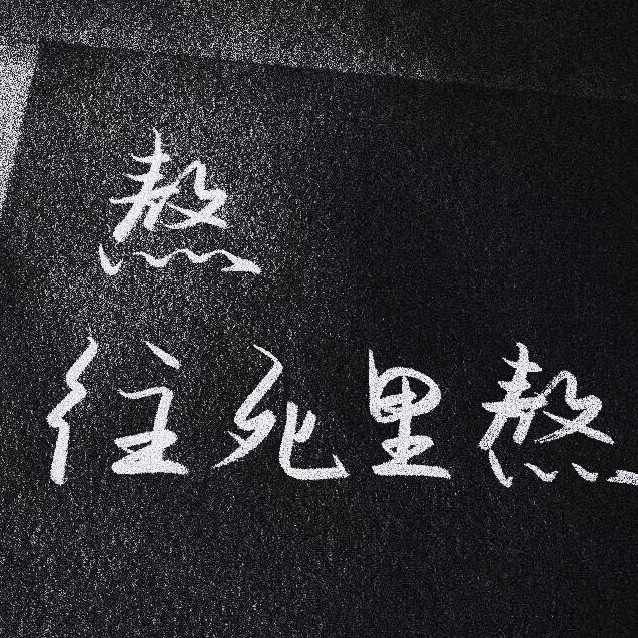 熬
往死里熬